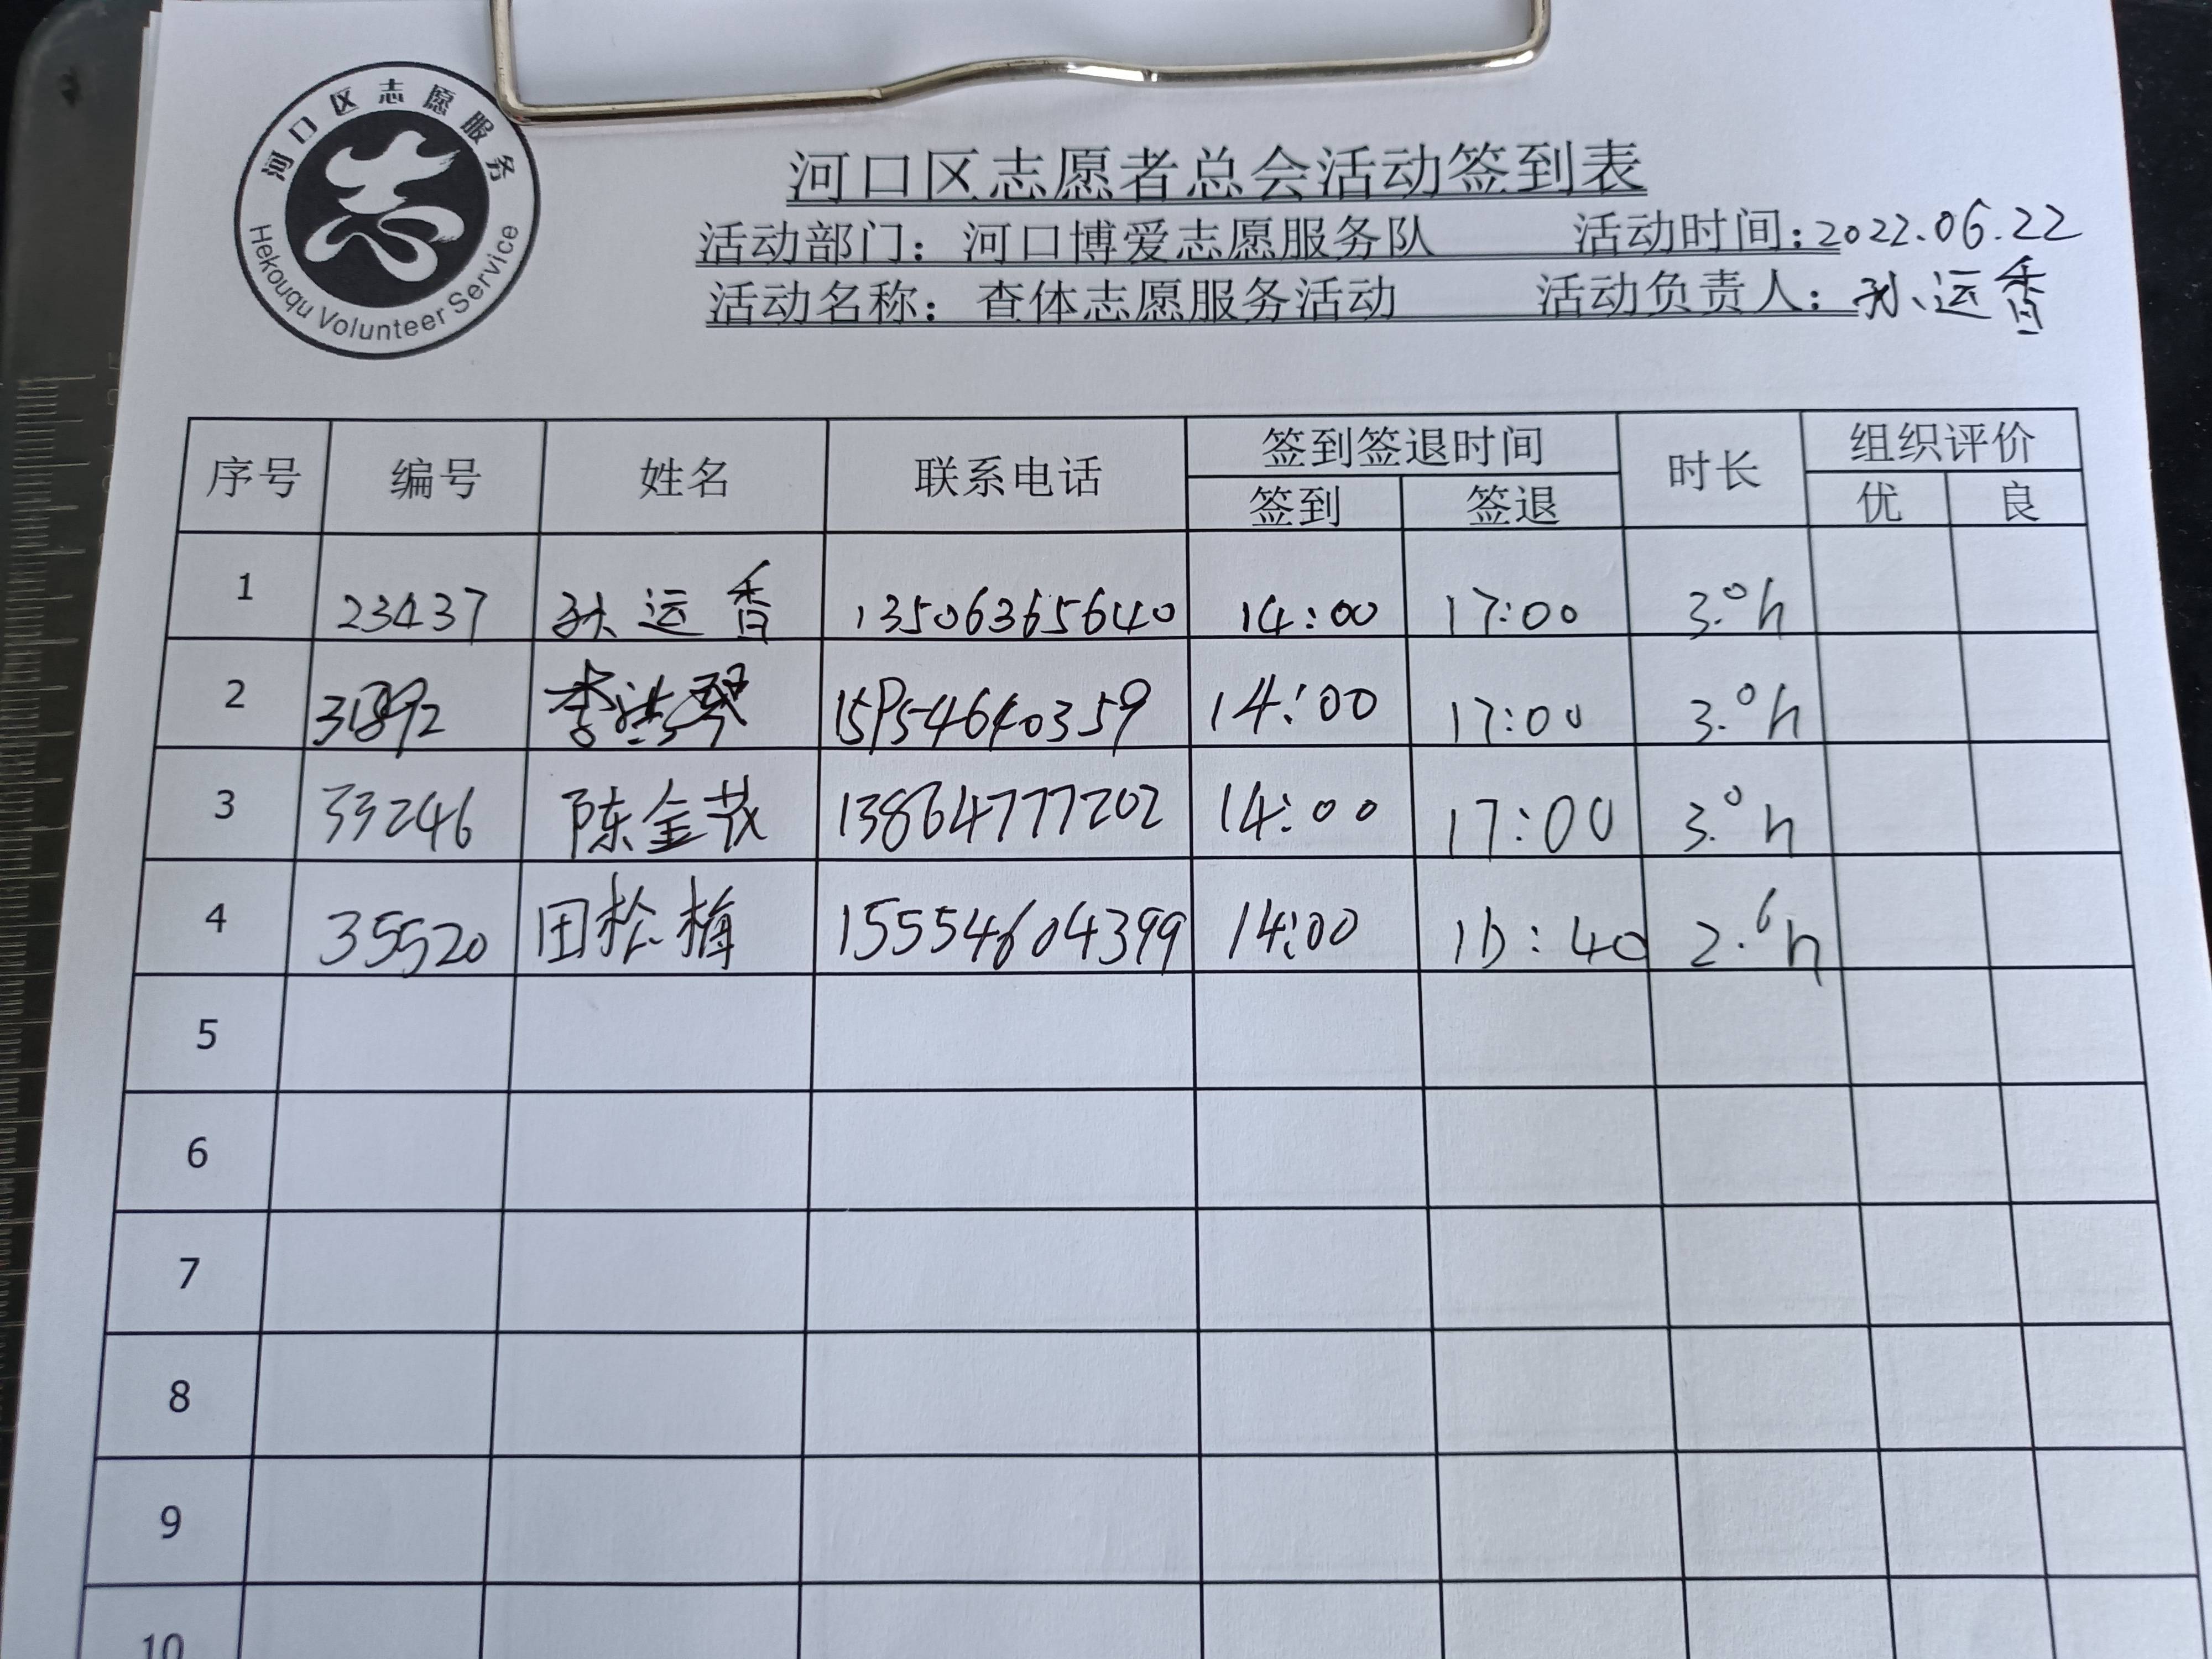 河口区志愿服务
Hekouqu Volunteer Service
河口区志愿者总会活动签到表
活动部门：河口博爱志愿服务队 活动时间：2022.06.22
活动名称：查体志愿服务活动 活动负责人：孙运香
序号 编号 姓名 联系电话 签到签退时间 时长 组织评价
签到 签退 优 良
1 23437 孙运香 13506365640 14:00 17:00 3.0h
2 李 琴 15954640359 14:00 17:00 3.0h
3 33246 陈金茂 13864777202 14:00 17:00 3.0h
4 35520 田松梅 15554604399 14:00 16:40 2.6h
5
6
7
8
9
10